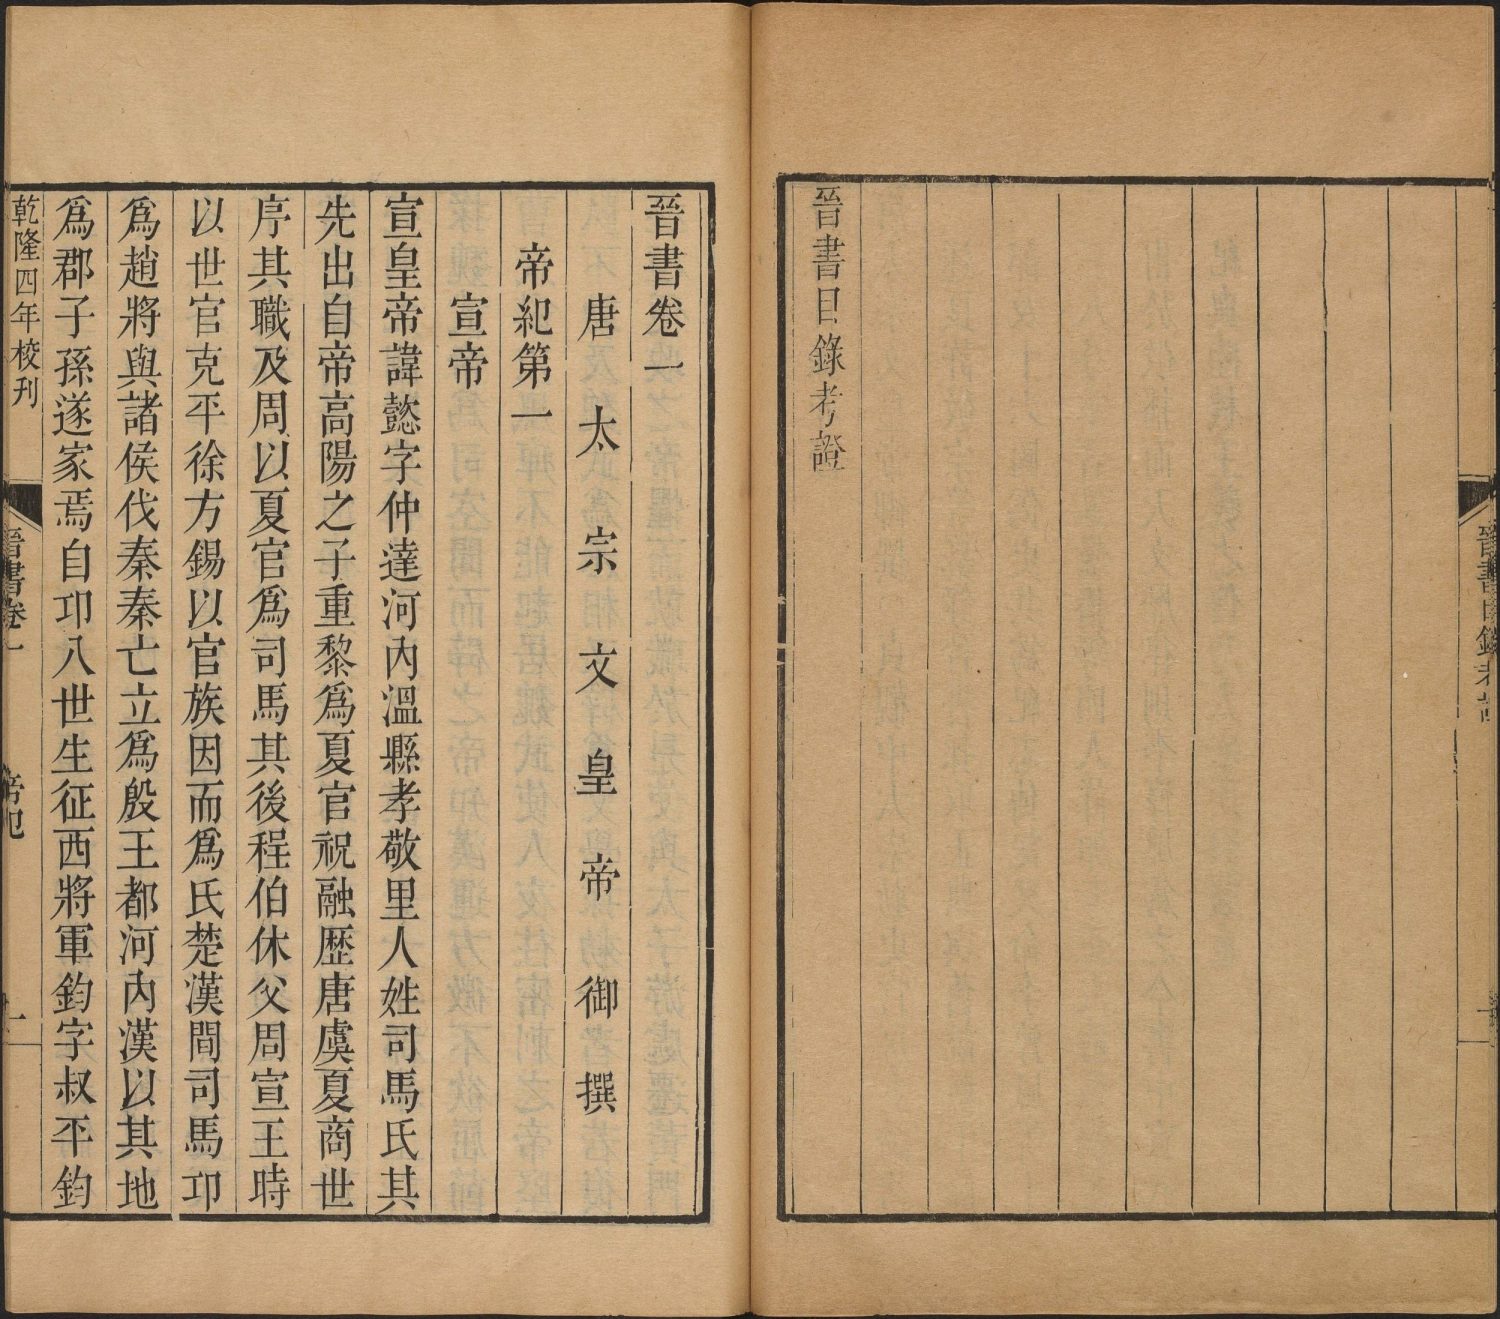 晉書目錄考證
晉書目錄考證
晉書卷一
唐太宗文皇帝御撰
帝紀第一
宣帝
宣皇帝諱懿字仲達河內溫縣孝敬里人姓司馬氏其
先出自帝高陽之子重黎爲夏官祝融歷唐虞夏商世
序其職及周以夏官爲司馬其後程伯休父周宣王時
以世官克平徐方錫以官族因而爲氏楚漢間司馬卬
爲趙將與諸侯伐秦秦亡立爲殷王都河內漢以其地
爲郡子孫遂家焉自卬八世生征西將軍鈞字叔平鈞
乾隆四年校刊
晉書卷一
帝紀
一